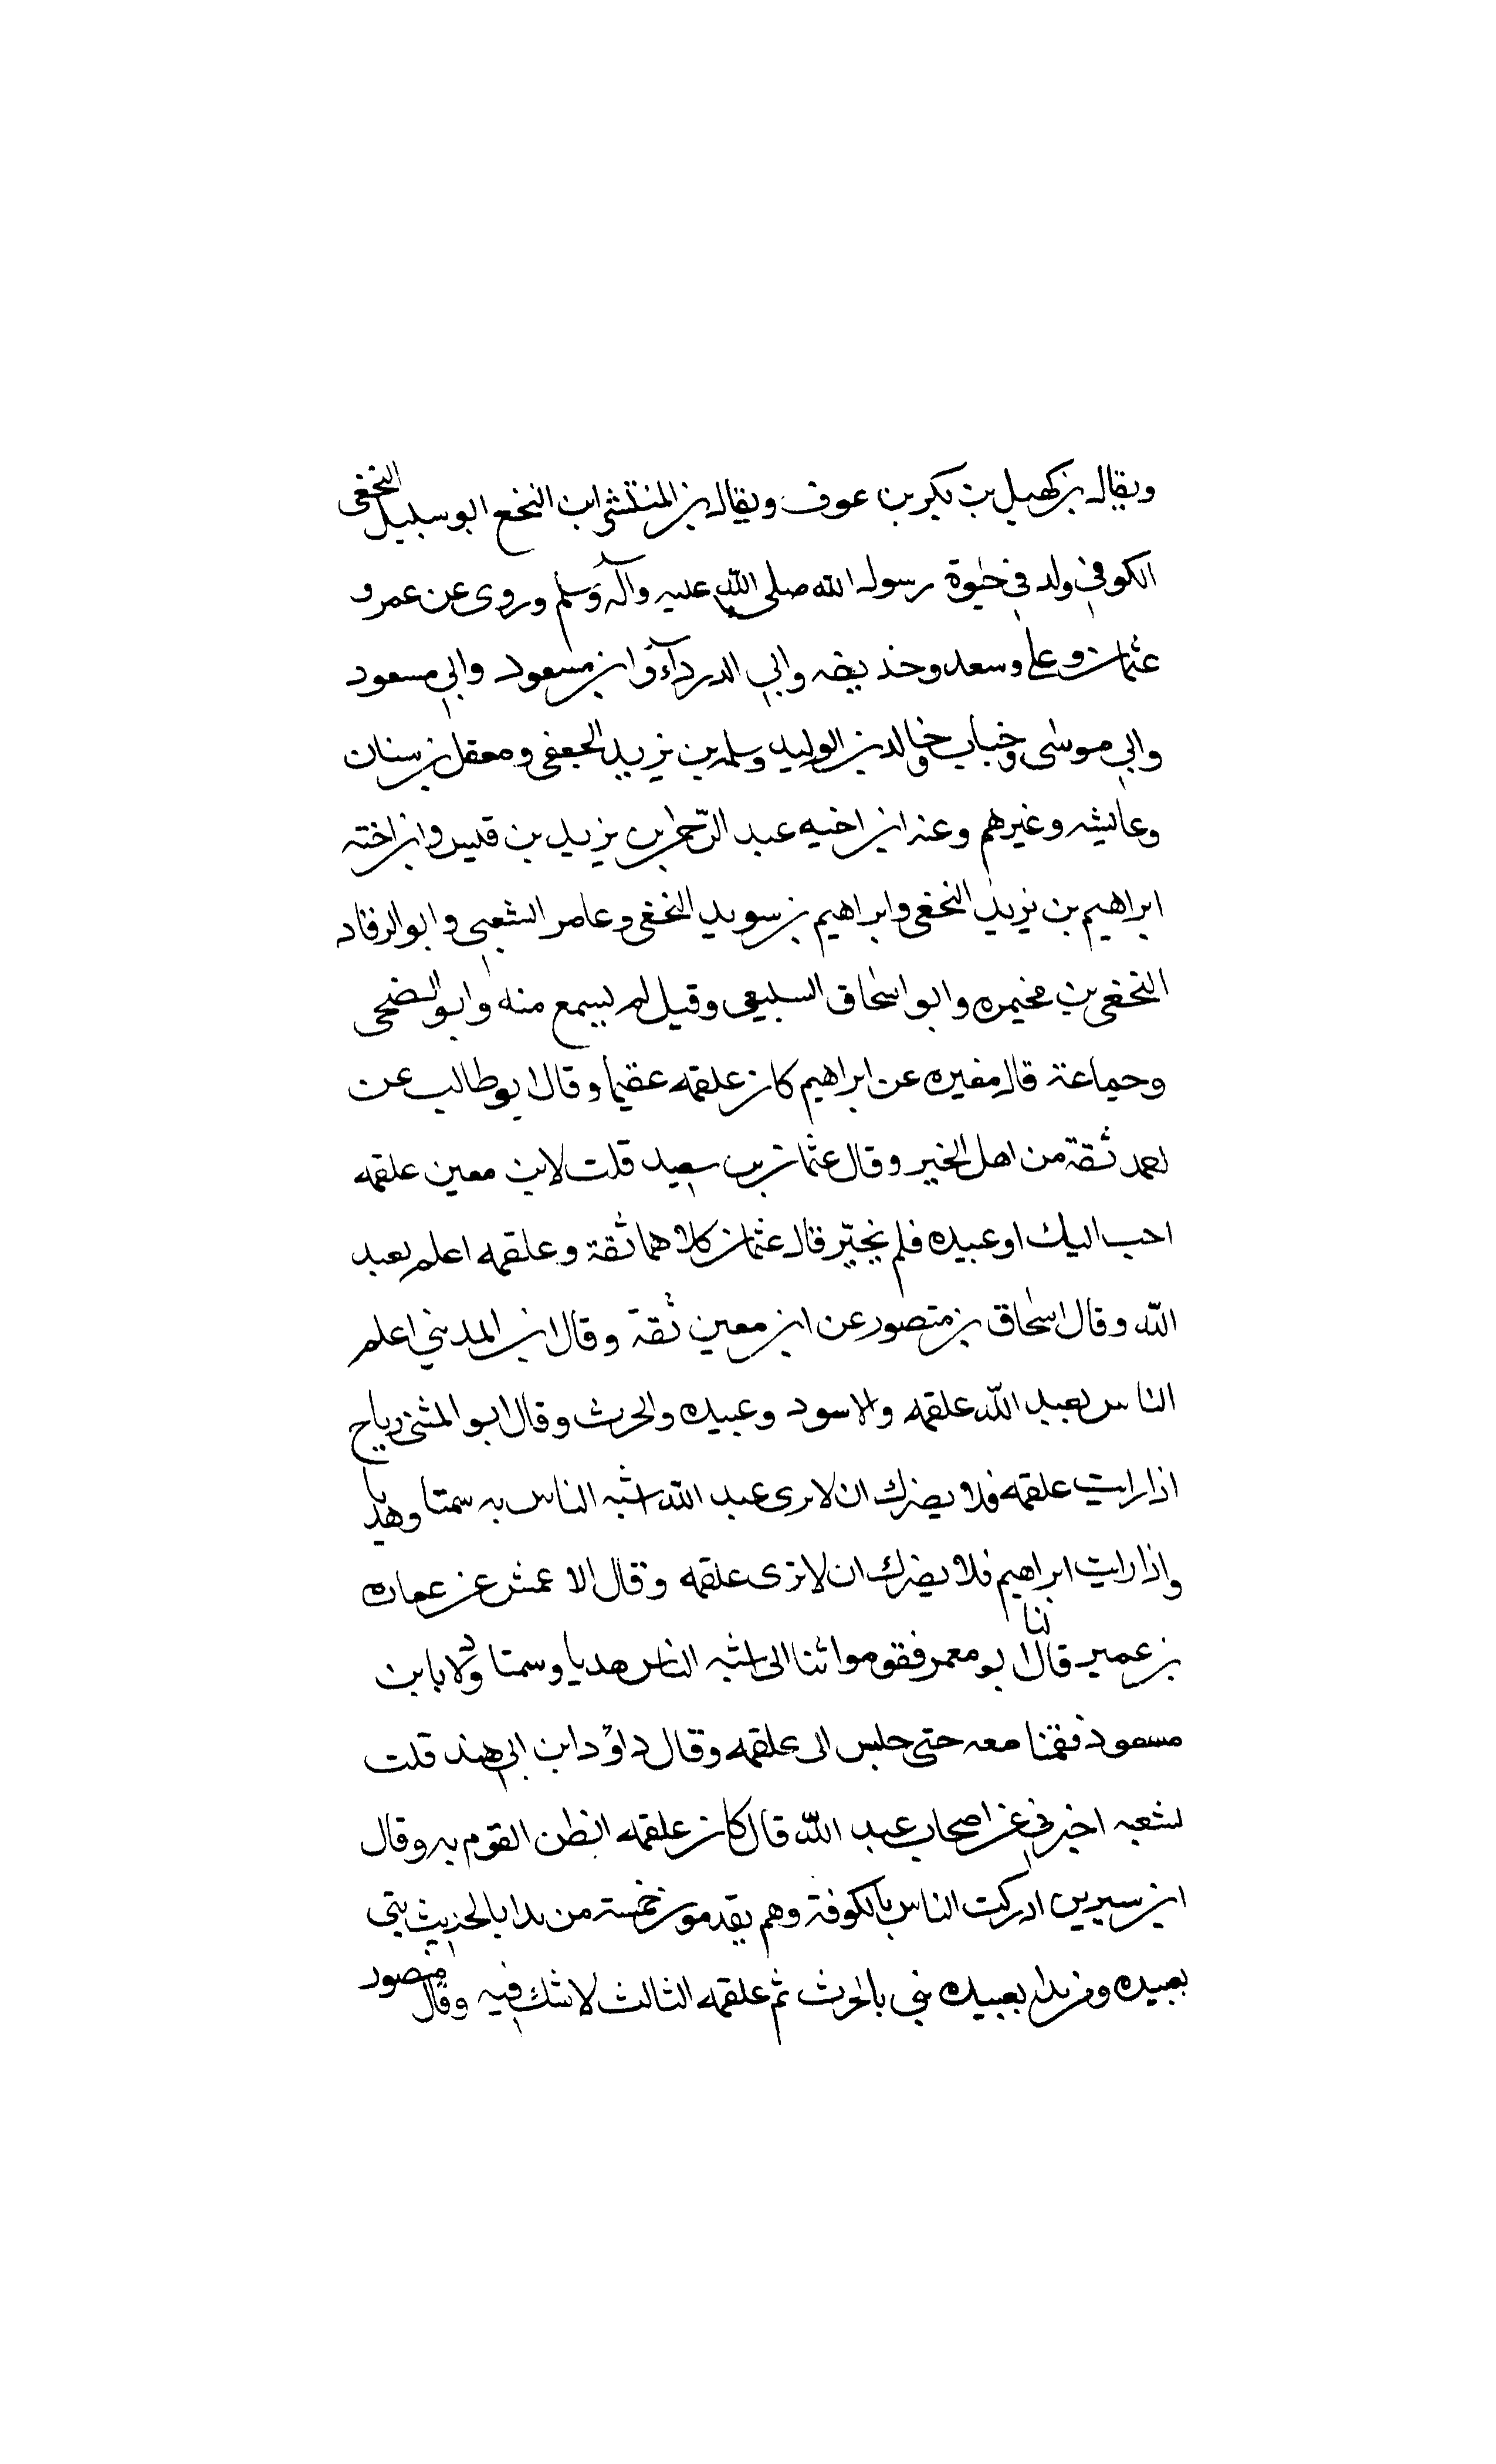 ويقال بن كهيل بن بكر بن عوف ويقال بن المنتشر ابن النخع ابو سليل النخعى
الكوفي ولد في حيوة رسول الله صلى الله عليه وآله وسلم وروى عن عمر و
عثمان وعلى وسعد وحذيفه وابي الدرداء وابن مسعود وابي مسعود
وابي موسى وخباب وخالد بن الوليد وسلمه بن يزيد الجعفى ومعقل بن سنان
وعايشه وغيرهم وعنه ابن اخيه عبد الرحمن بن يزيد بن قيس وابن اخته
ابراهيم بن يزيد النخعى وابراهيم بن سويد النخعى وعامر الشعبي وابو الرقاد
النخعى بن مخيمره وابو اسحاق السبيعى وقيل لم يسمع منه وابو الضحى
وجماعة قال مغيره عن ابراهيم كان علقمه عقيما وقال ابو طالب عن
احمد ثقة من اهل الخير وقال عثمان بن سعيد قلت لابن معين علقمه
احب اليك او عبيده فلم يخير قال عثمان كلاهما ثقة وعلقمه اعلم بعبد
الله وقال اسحاق بن منصور عن ابن معين ثقة وقال ابن المديني اعلم
الناس بعبد الله علقمه والاسود وعبيده والحرث وقال ابو المثنى رياح
اذا رايت علقمه فلا يضرك ان لا ترى عبد الله اشبه الناس به سمتا وهديا
واذا رايت ابراهيم فلا يضرك ان لا ترى علقمه وقال الاعمش عن عماره
بن عمير قال لنا ابو معمر فقوموا ئنا الى اشبه الناس هديا وسمتا ودلا بابن
مسعود فقمنا معه حتى جلس الى علقمه وقال داؤد ابن ابي هند قلت
لشعبه اخبرني عن اصحاب عبد الله قال كان علقمه انظن القوم به وقال
ابن سيرين ادركت الناس بالكوفة وهم يقدمون خمسة من بدا بالحديث بتى
بعبيده ومن بدا بعبيده بنى بالحرث ثم علقمه الثالث لا شك فيه وقال منصور